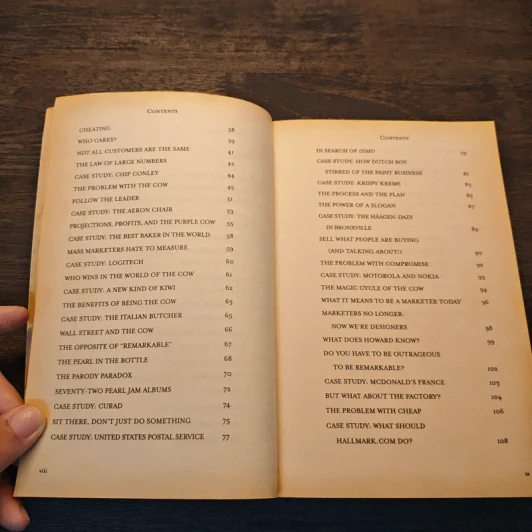 CONTENTS
CHEATING 38
WHO CARES? 39
NOT ALL CUSTOMERS ARE THE SAME 41
THE LAW OF LARGE NUMBERS 42
CASE STUDY: CHIP CONLEY 44
THE PROBLEM WITH THE COW 45
FOLLOW THE LEADER 51
CASE STUDY: THE AERON CHAIR 53
PROJECTIONS, PROFITS, AND THE PURPLE COW 55
CASE STUDY: THE BEST BAKER IN THE WORLD 58
MASS MARKETERS HATE TO MEASURE 59
CASE STUDY: LOGITECH 60
WHO WINS IN THE WORLD OF THE COW 61
CASE STUDY: A NEW KIND OF KIWI 62
THE BENEFITS OF BEING THE COW 63
CASE STUDY: THE ITALIAN BUTCHER 65
WALL STREET AND THE COW 66
THE OPPOSITE OF "REMARKABLE" 67
THE PEARL IN THE BOTTLE 68
THE PARODY PARADOX 70
SEVENTY-TWO PEARL JAM ALBUMS 72
CASE STUDY: CURAD 74
SIT THERE, DON'T JUST DO SOMETHING 75
CASE STUDY: UNITED STATES POSTAL SERVICE 77
viii
CONTENTS
IN SEARCH OF OTAKU 79
CASE STUDY: HOW DUTCH BOY
STIRRED UP THE PAINT BUSINESS 81
CASE STUDY: KRISPY KREME
THE PROCESS AND THE PLAN 85
THE POWER OF A SLOGAN 87
CASE STUDY: THE HÄAGEN-DAZS
IN BRONXVILLE 89
SELL WHAT PEOPLE ARE BUYING
(AND TALKING ABOUT!) 90
THE PROBLEM WITH COMPROMISE
CASE STUDY: MOTOROLA AND NOKIA 93
THE MAGIC CYCLE OF THE COW 94
WHAT IT MEANS TO BE A MARKETER TODAY 96
MARKETERS NO LONGER:
NOW WE'RE DESIGNERS 98
WHAT DOES HOWARD KNOW? 99
DO YOU HAVE TO BE OUTRAGEOUS
TO BE REMARKABLE? 102
CASE STUDY: MCDONALD'S FRANCE 103
BUT WHAT ABOUT THE FACTORY? 104
THE PROBLEM WITH CHEAP 106
CASE STUDY: WHAT SHOULD
HALLMARK.COM DO? 108
ix